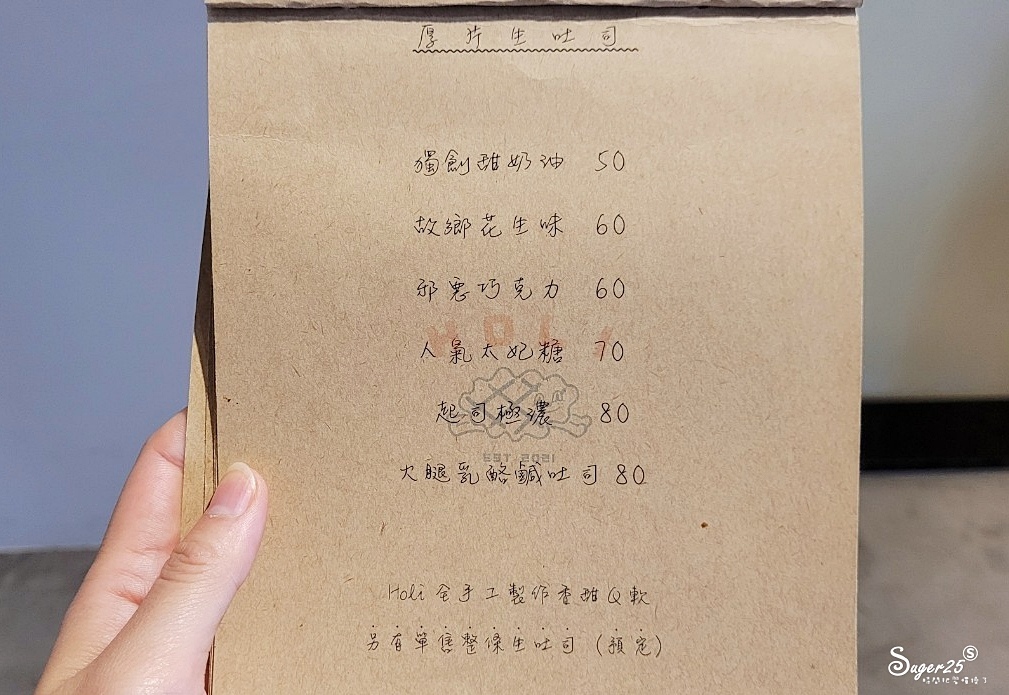 厚片生吐司
獨創甜奶油 50
故鄉花生味 60
邪惡巧克力 60
人氣太妃糖 70
起司極濃 80
火腿乳酪鹹吐司 80
HOLi
EST 2021
Holi 全手工製作香甜Q軟
另有單售整條生吐司(預定)
Suger25